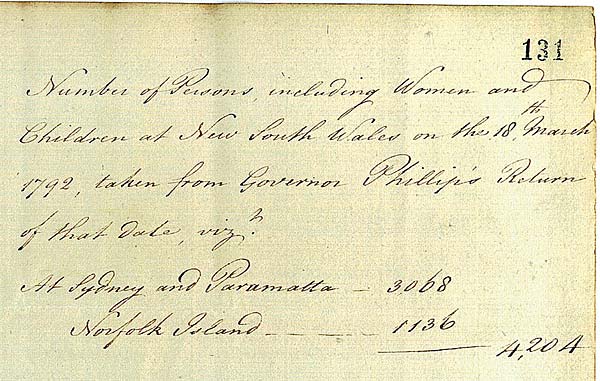 131
Number of Persons, including Women and
Children at New South Wales on the 18.th March
1792, taken from Governor Phillip's Return
of that date, vizt.
At Sydney and Paramatta — 3068
Norfolk Island — 1136
4,204